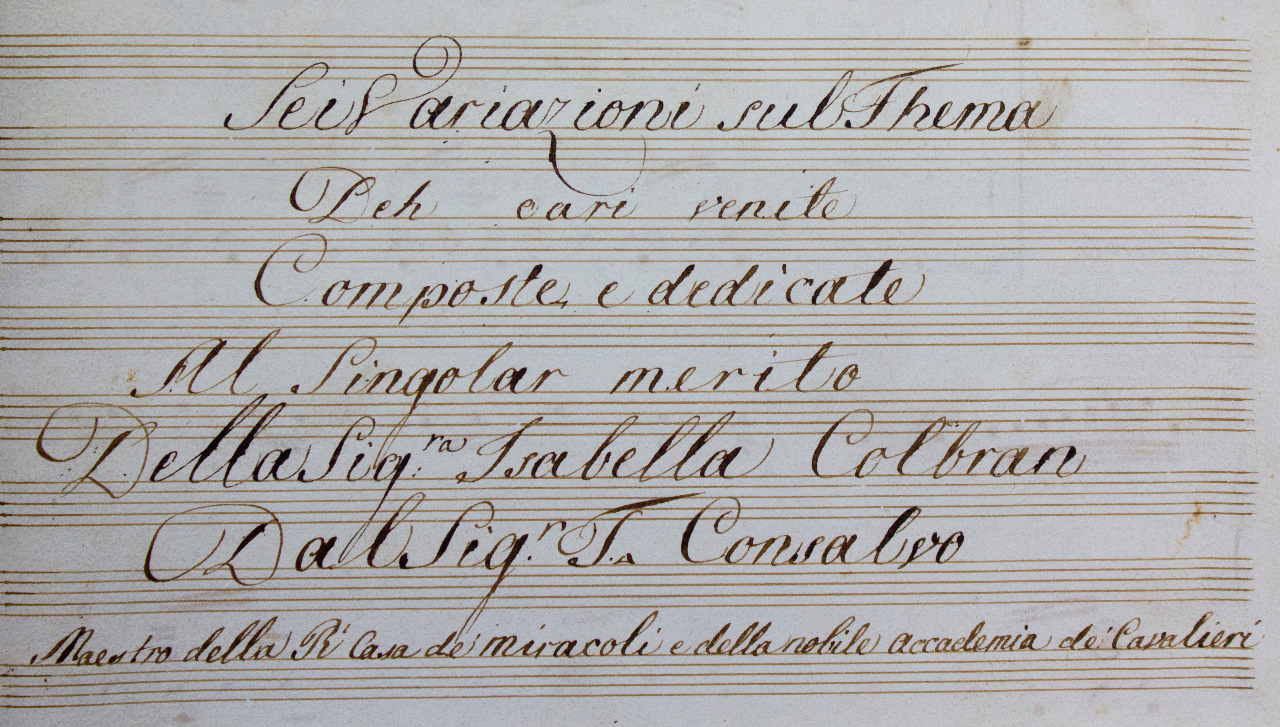 Sei Variazioni sul Thema
Deh cari venite
Composte, e dedicate
Al Singolar merito
Della Sig.ra Isabella Colbran
Dal Sig.r T. Consalvo
Maestro della Rl Casa de' miracoli e della nobile accademia de' Cavalieri